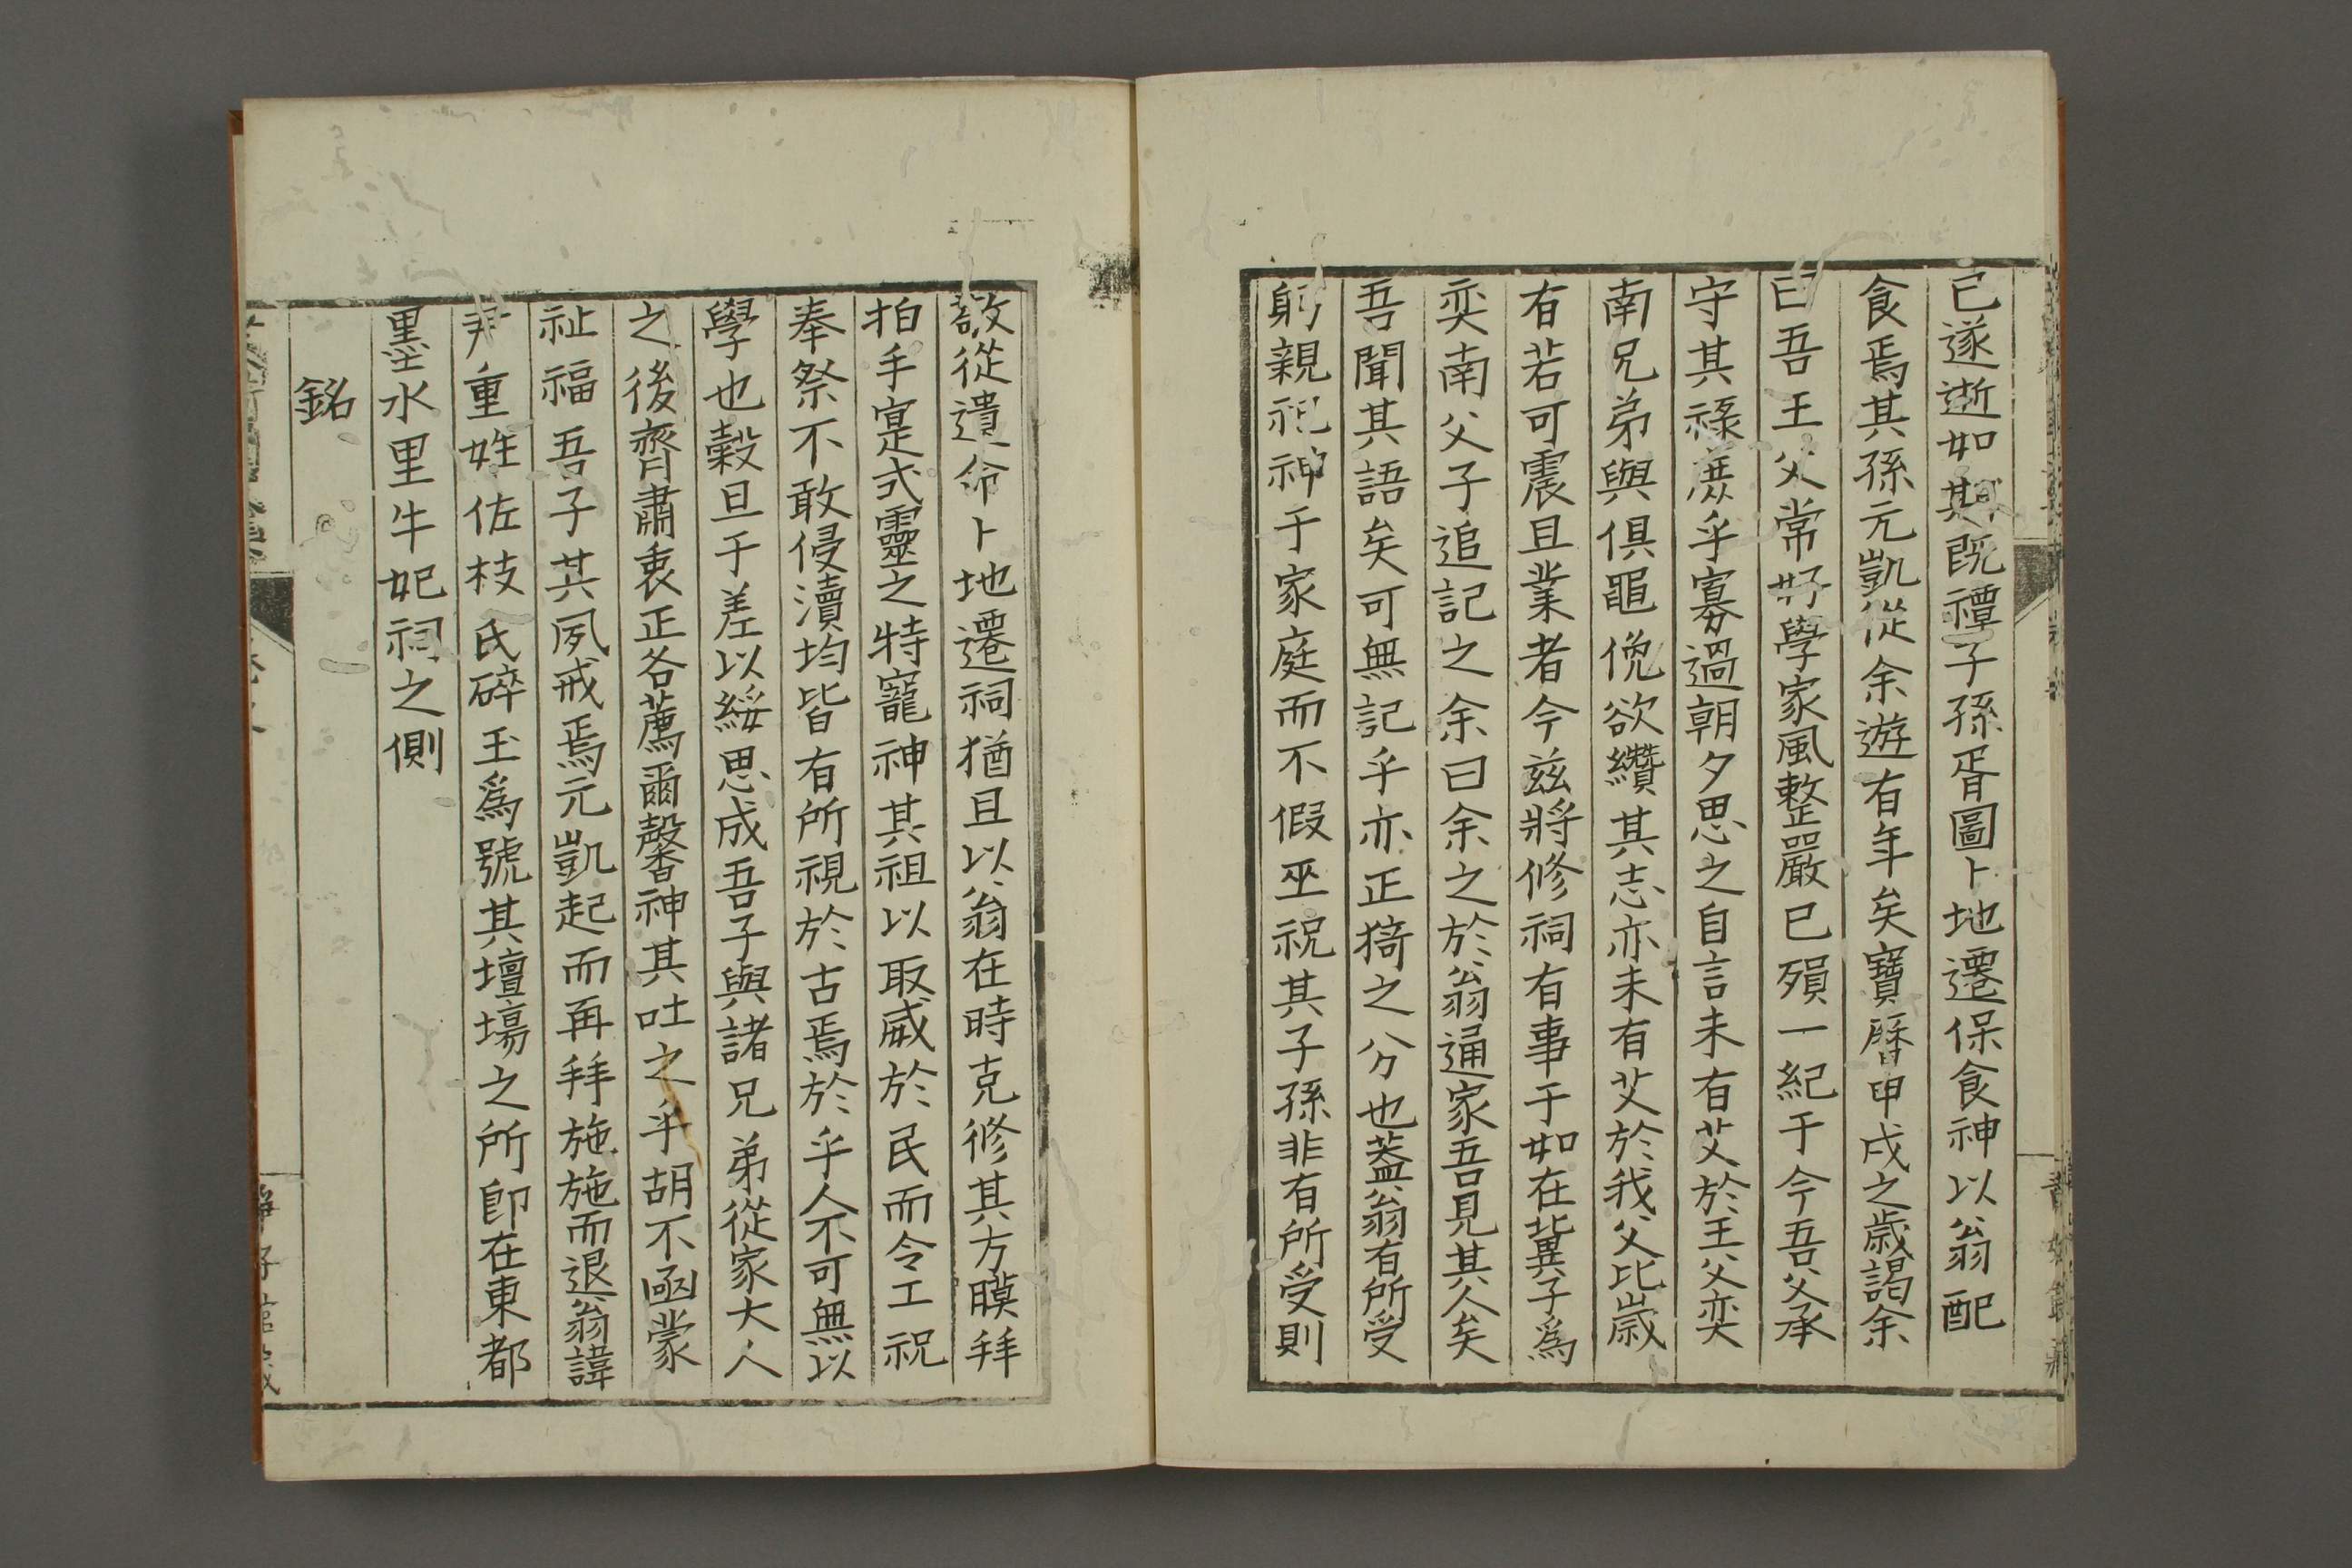 已遂逝如期既禫子孫胥圖卜地遷保食神以翁配
食焉其孫元凱從余遊有年矣寶曆甲戌之歳謁余
曰吾王父常好學家風整嚴已殞一紀于今吾父承
守其祿庶乎寡過朝夕思之自言未有艾於王父奕
南兄弟與俱黽俛欲纘其志亦未有艾於我父比歳
有若可震且業者今茲將修祠有事于如在冀子爲
奕南父子追記之余曰余之於翁通家吾見其人矣
吾聞其語矣可無記乎亦正猗之分也蓋翁有所受
躬親祀神于家庭而不假巫祝其子孫非有所受則
敬從遺命卜地遷祠猶且以翁在時克修其方膜拜
拍手寔式靈之特寵神其祖以取威於民而令工祝
奉祭不敢侵瀆均皆有所視於古焉於乎人不可無以
學也穀旦于差以綏思成吾子與諸兄弟從家大人
之後齊肅衷正各薦爾馨神其吐之乎胡不函蒙
祉福吾子其夙戒焉元凱起而再拜施施而退翁諱
尹重姓佐枝氏碎玉爲號其壇場之所卽在東都
墨水里牛妃祠之側
銘